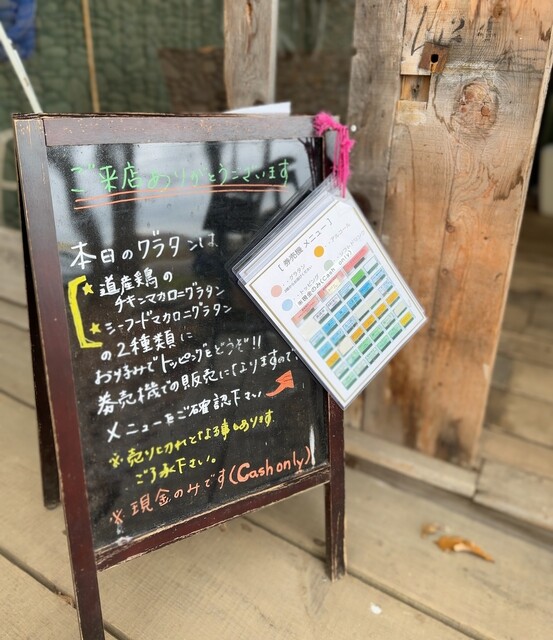 ご来店ありがとうございます
本日のグラタンは
★道産鶏の
チキンマカロニグラタン
★シーフードマカロニグラタン
の2種類に
お好みでトッピングをどうぞ!!
券売機での販売になりますので、
メニューをご確認下さい
※売り切れてしまう事もあります。
ご了承下さい。
※現金のみです(Cash only)
[券売機 メニュー]
※現金のみ(Cash only)